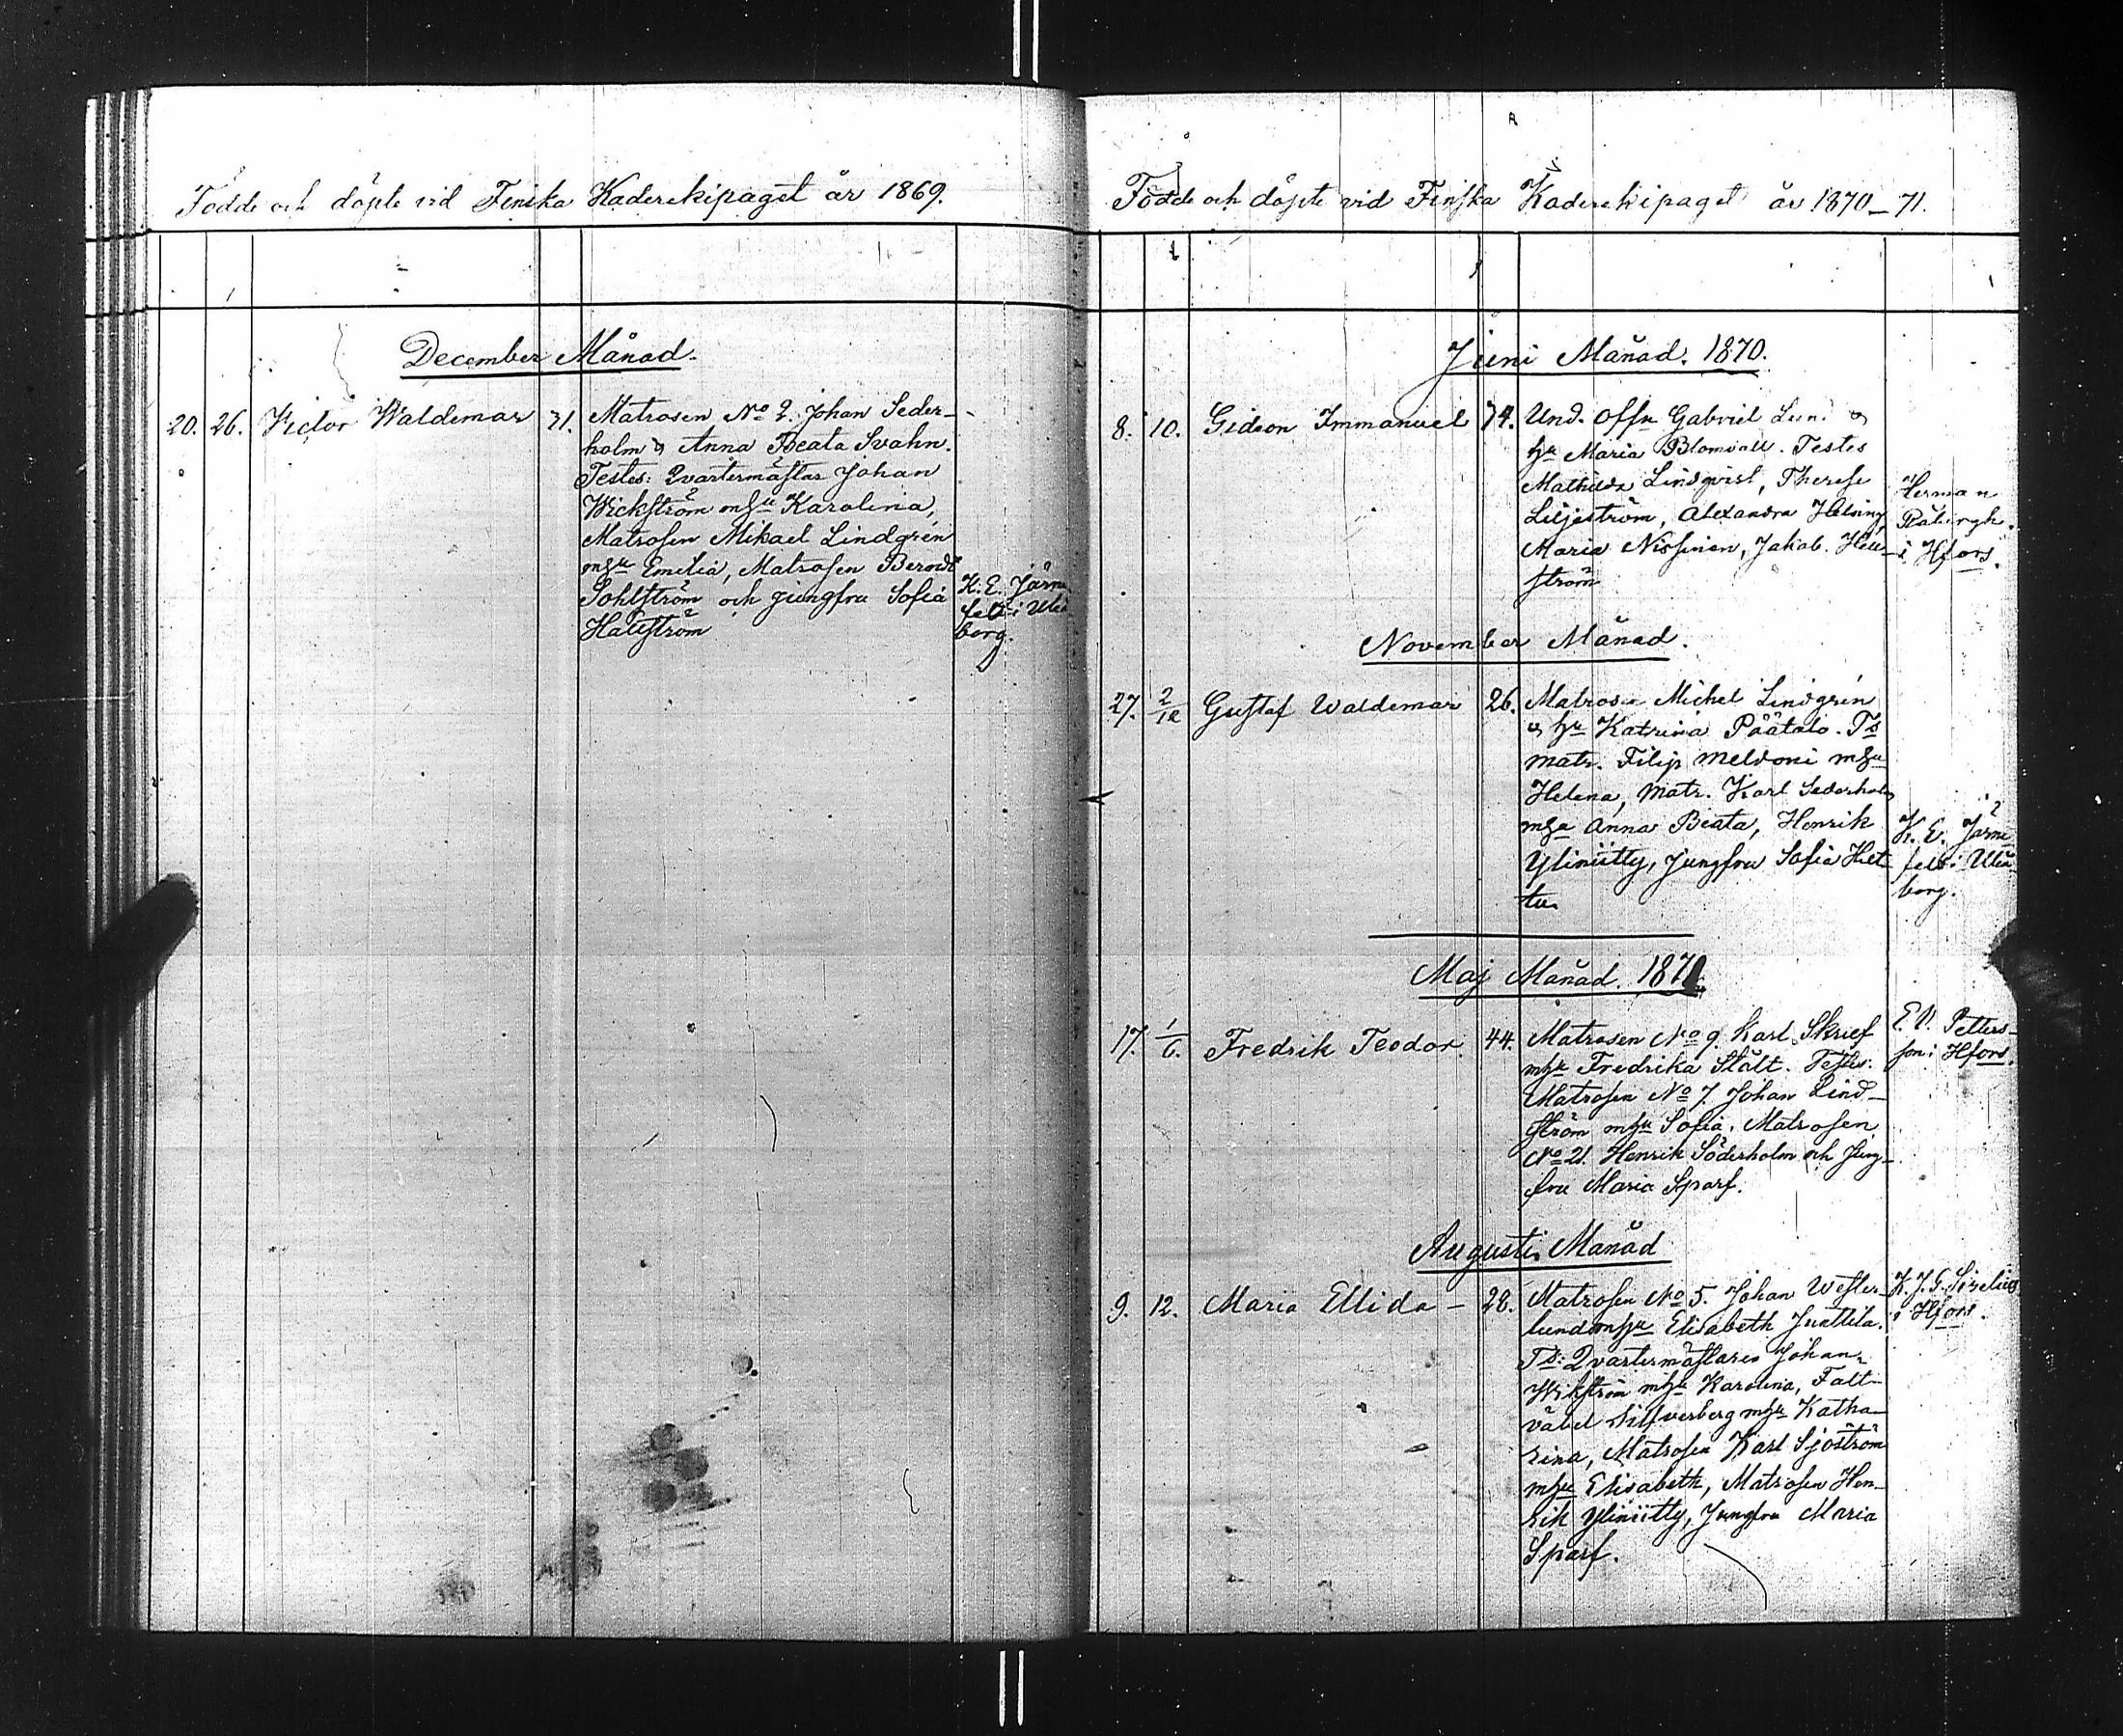 Födde och döpte vid Finska Kaderekipaget år 1869.
December Månad.
20. 26. Victor Waldemar 31. Matrosen No 2. Johan Seder-
holm & Anna Beata Svahn.
Testes: Qvartermästar Johan
Wickström mhu Karolina,
Matrosen Mikael Lindgrén
mhu Emelia, Matrosen Berndt
Sohlström och jungfru Sofia
Hallström
K. E. Järne
felt i Uleå
borg.
Födde och döpte vid Finska Kaderekipaget år 1870-71.
Juni Månad. 1870.
8. 10. Gideon Immanuel 74. Und. offn Gabriel Lund &
hu Maria Blomvall. Testes
Mathilda Lindqvist, Therese
Liljeström, Alexandra Helsing
Maria Nissinen, Jakob Hell-
ström
Herman
Råbergh.
i Hfors.
November Månad.
27. 2/12 Gustaf Waldemar 26. Matrosen Michel Lindgrén
& hu Katrina Päätalo. Ts
matr. Filip Meldoni mhu
Helena, Matr. Karl Sederholm
mhu Anna Beata, Henrik
Yliniitty, jungfru Sofia Helt
tu.
K. E. Järne
felt i Uleå
borg.
Maj Månad. 1871.
17. 1/6. Fredrik Teodor. 44. Matrosen No 9. Karl Skrief
mhu Fredrika Stålt. Testes:
Matrosen No 7. Johan Lind-
ström mhu Sofia. Matrosen
No 21. Henrik Söderholm och Jung-
fru Maria Sparf.
E. V. Petters-
son i Hfors.
Augusti Månad
9. 12. Maria Ellida - 28. Matrosen No 5. Johan Wester-
lund mhu Elisabeth Junttila.
Ts: Qvartermästaren Johan
Wikström mhu Karolina, Fält-
väbel Silfverberg mhu Katha-
rina, Matrosen Karl Sjöström
mhu Elisabeth, Matrosen Hen-
rik Yliniitty, Jungfru Maria
Sparf.
K. J. G. Sirelius
i Hfors.